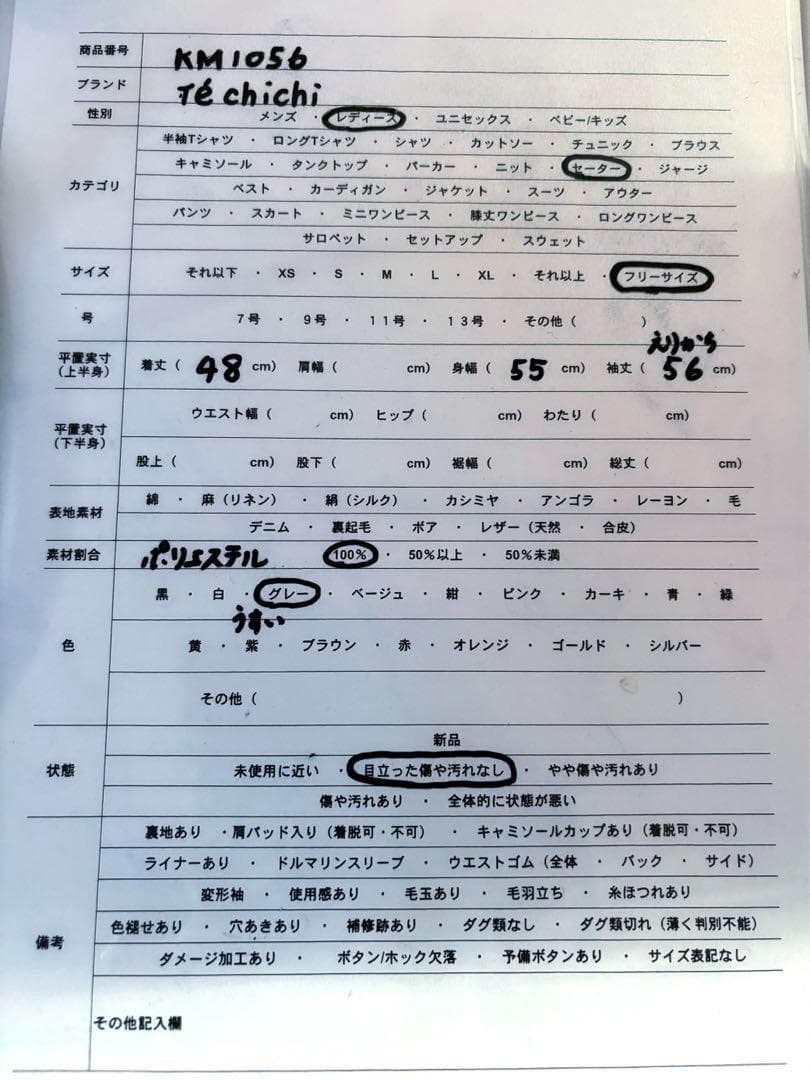 商品番号 KM1056
ブランド Té chichi
性別 メンズ ・ レディース ・ ユニセックス ・ ベビー/キッズ
カテゴリ
半袖Tシャツ ・ ロングTシャツ ・ シャツ ・ カットソー ・ チュニック ・ ブラウス
キャミソール ・ タンクトップ ・ パーカー ・ ニット ・ セーター ・ ジャージ
ベスト ・ カーディガン ・ ジャケット ・ スーツ ・ アウター
パンツ ・ スカート ・ ミニワンピース ・ 膝丈ワンピース ・ ロングワンピース
サロペット ・ セットアップ ・ スウェット
サイズ それ以下 ・ XS ・ S ・ M ・ L ・ XL ・ それ以上 ・ フリーサイズ
号 7号 ・ 9号 ・ 11号 ・ 13号 ・ その他（ ）
えりから
平置実寸（上半身） 着丈（ 48 cm） 肩幅（ cm） 身幅（ 55 cm） 袖丈（ 56 cm）
平置実寸（下半身）
ウエスト幅（ cm） ヒップ（ cm） わたり（ cm）
股上（ cm） 股下（ cm） 裾幅（ cm） 総丈（ cm）
表地素材
綿 ・ 麻（リネン） ・ 絹（シルク） ・ カシミヤ ・ アンゴラ ・ レーヨン ・ 毛
デニム ・ 裏起毛 ・ ボア ・ レザー（天然 ・ 合皮）
素材割合 ポリエステル 100% ・ 50%以上 ・ 50%未満
色
黒 ・ 白 ・ グレー ・ ベージュ ・ 紺 ・ ピンク ・ カーキ ・ 青 ・ 緑
うすい
黄 ・ 紫 ・ ブラウン ・ 赤 ・ オレンジ ・ ゴールド ・ シルバー
その他（ ）
状態
新品
未使用に近い ・ 目立った傷や汚れなし ・ やや傷や汚れあり
傷や汚れあり ・ 全体的に状態が悪い
備考
裏地あり ・肩パッド入り（着脱可・不可） ・ キャミソールカップあり（着脱可・不可）
ライナーあり ・ ドルマリンスリーブ ・ ウエストゴム（全体 ・ バック ・ サイド）
変形袖 ・ 使用感あり ・ 毛玉あり ・ 毛羽立ち ・ 糸ほつれあり
色褪せあり ・ 穴あきあり ・ 補修跡あり ・ ダグ類なし ・ ダグ類切れ（薄く判別不能）
ダメージ加工あり ・ ボタン/ホック欠落 ・ 予備ボタンあり ・ サイズ表記なし
その他記入欄